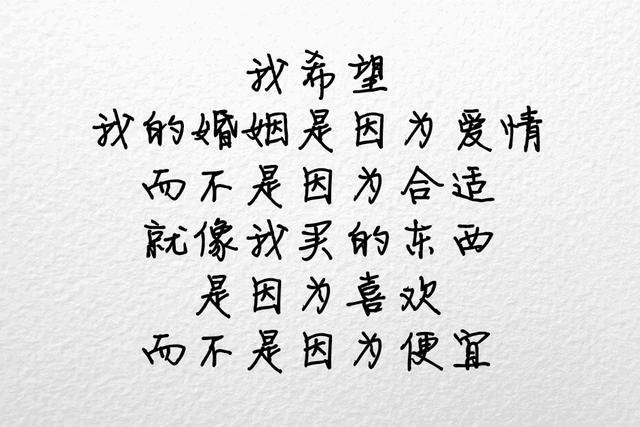 我希望
我的婚姻是因为爱情
而不是因为合适
就像我买的东西
是因为喜欢
而不是因为便宜